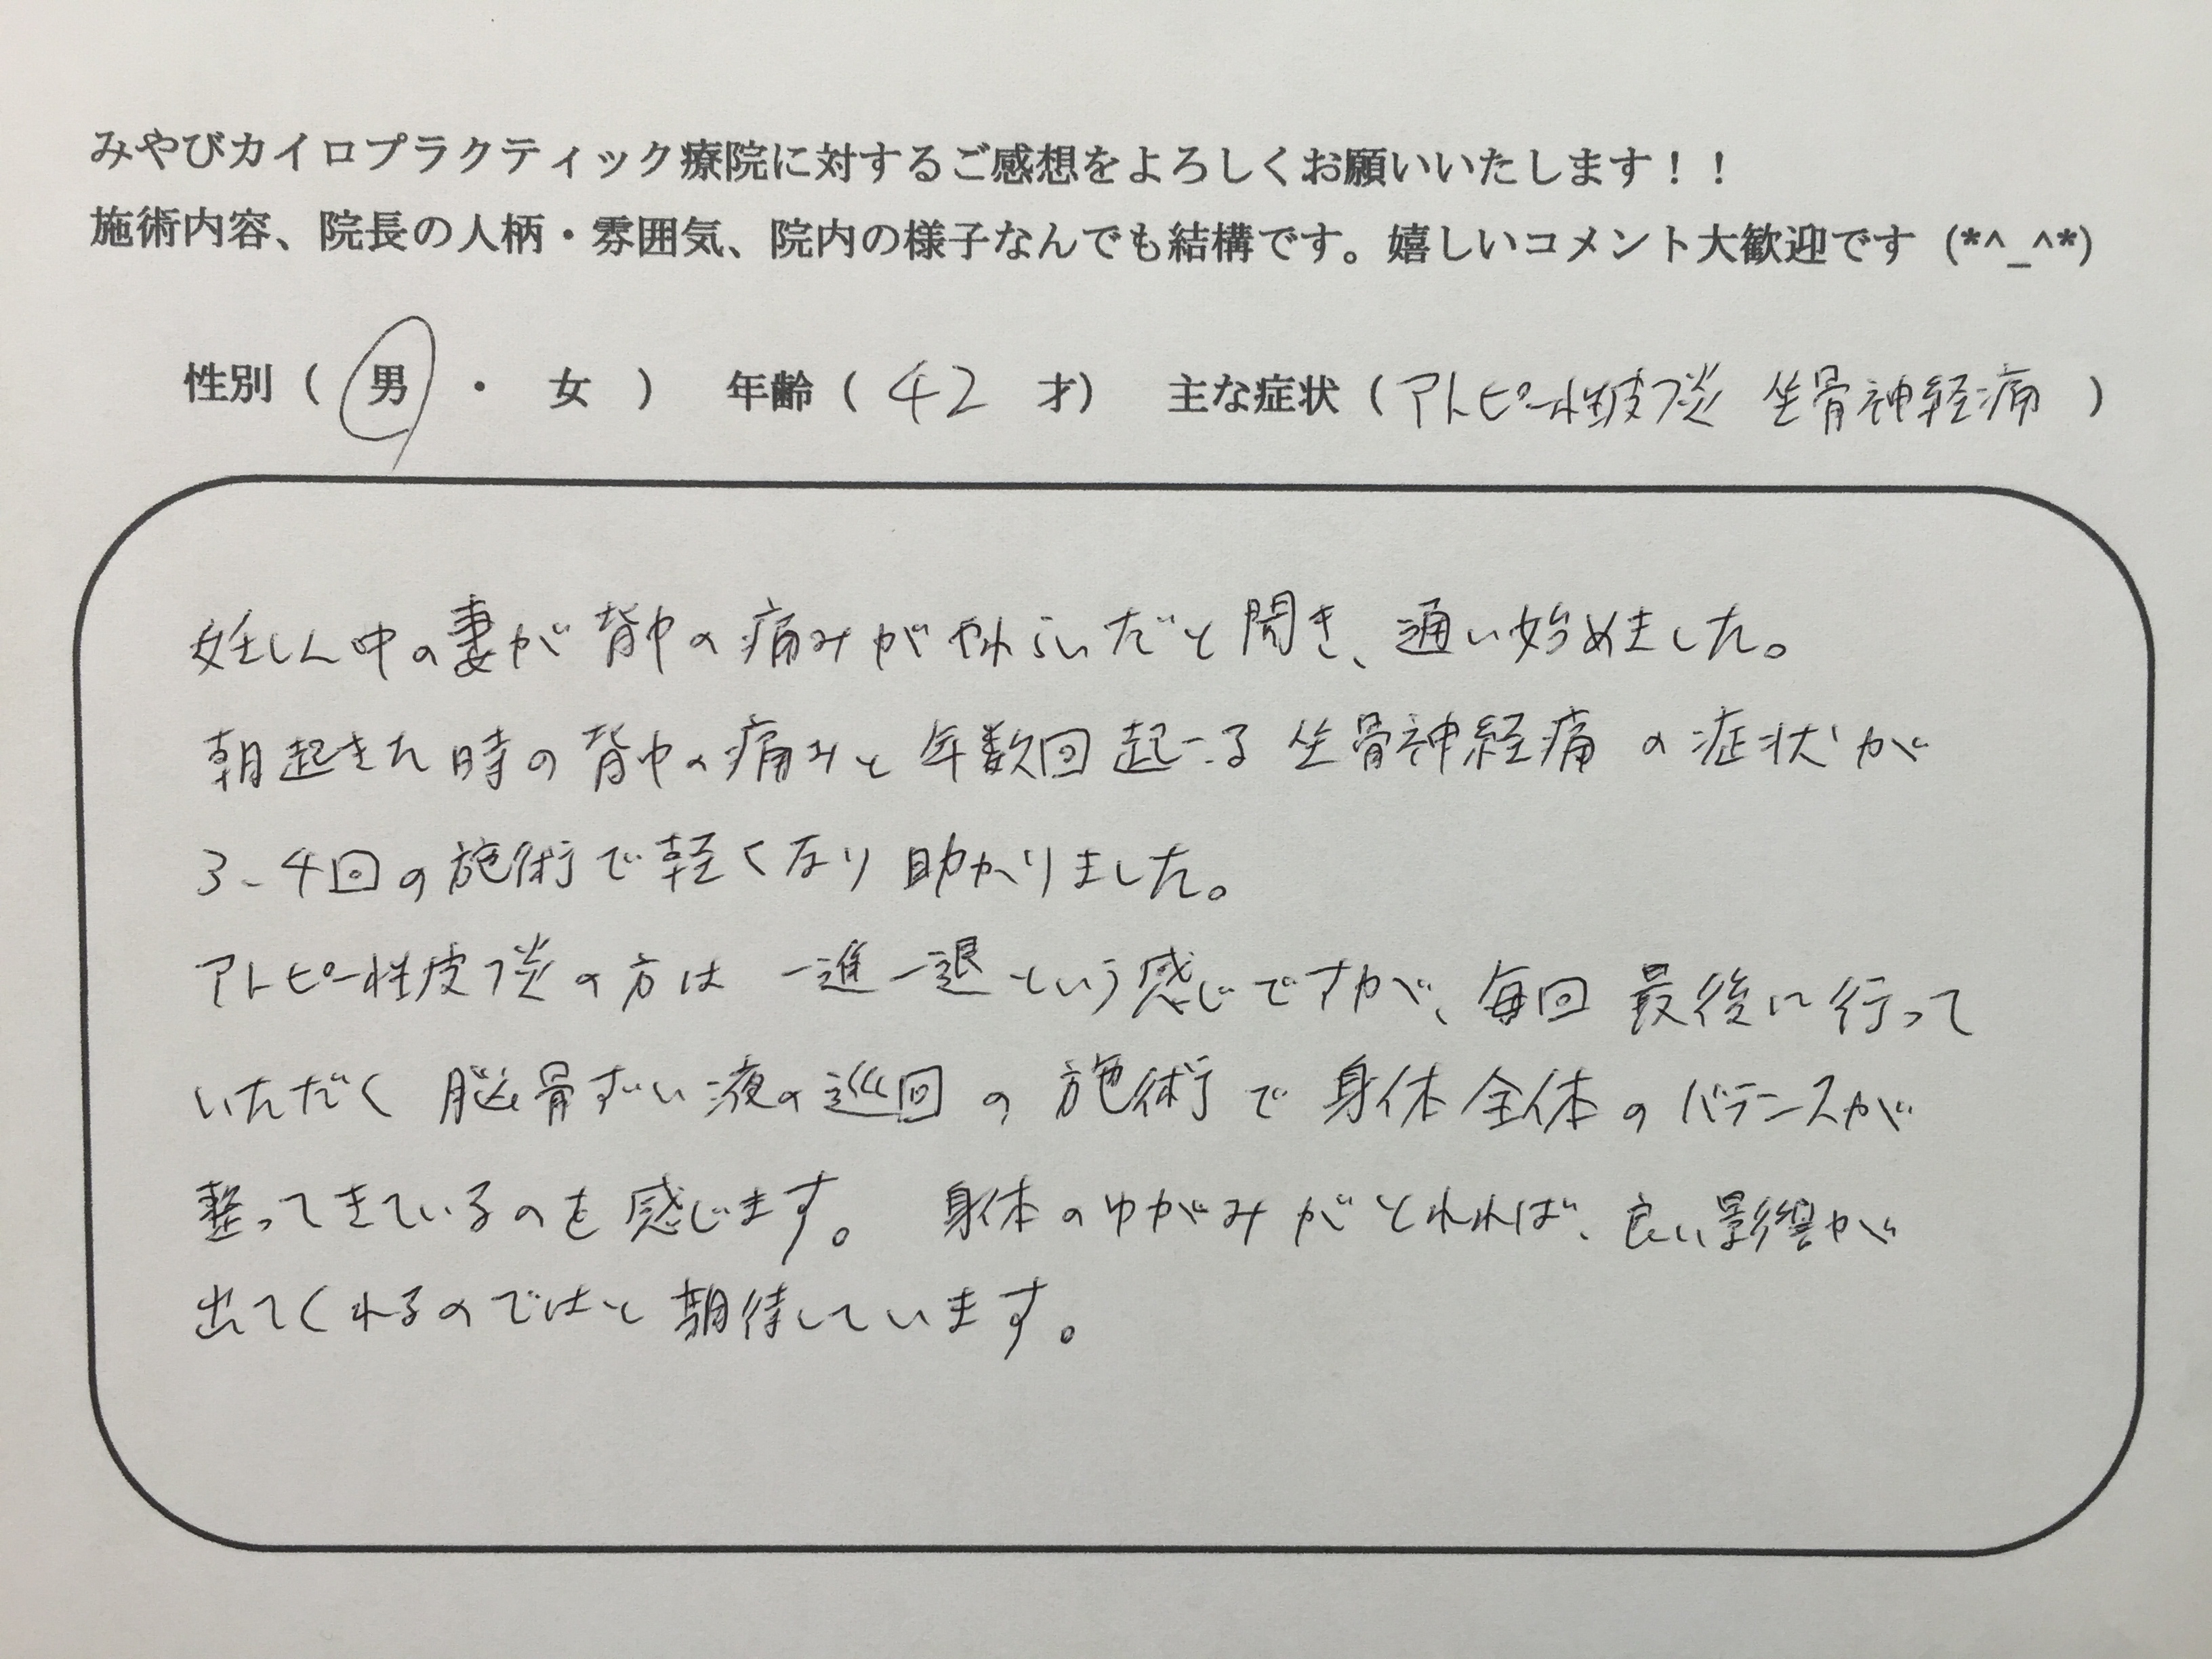 みやびカイロプラクティック療院に対するご感想をよろしくお願いいたします！！
施術内容、院長の人柄・雰囲気、院内の様子なんでも結構です。嬉しいコメント大歓迎です (*^_^*)
性別（ 男 ・ 女 ） 年齢（ 42 才） 主な症状（アトピー性皮フ炎 坐骨神経痛 ）
妊しん中の妻が背中の痛みがやわらいだと聞き、通い始めました。
朝起きた時の背中の痛みと年数回起こる坐骨神経痛の症状が
3-4回の施術で軽くなり助かりました。
アトピー性皮フ炎の方は一進一退という感じですが、毎回最後に行って
いただく脳骨ずい液の巡回の施術で身体全体のバランスが
整ってきているのを感じます。身体のゆがみがとれれば、良い影響が
出てくれるのではと期待しています。